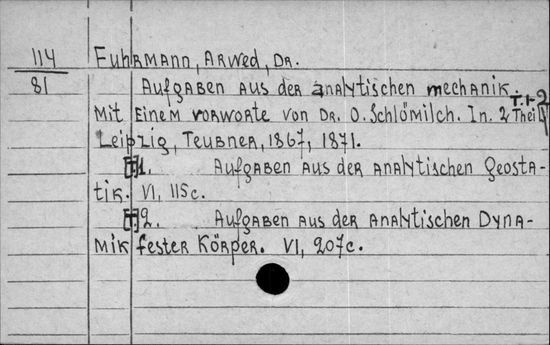 114 Fuhrmann, Arwed, Dr.
81 Aufgaben aus der analytischen mechanik. T.1-2
Mit Einem vorworte von Dr. O. Schlömilch. In. 2 Theil
Leipzig, Teubner, 1867, 1871.
[T]1. Aufgaben aus der analytischen Geosta-
tik. VI, 115c.
[T]2. Aufgaben aus der analytischen Dyna-
mik fester Körper. VI, 207c.